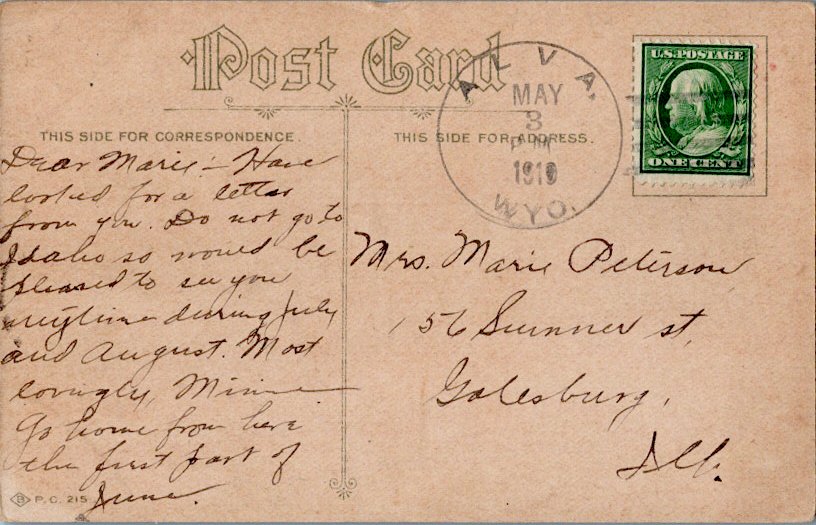 Post Card
ALVA,
MAY
3
P M
1910
WYO.
U.S. POSTAGE
ONE CENT
THIS SIDE FOR CORRESPONDENCE.
THIS SIDE FOR ADDRESS.
Dear Marie:- Have
looked for a letter
from you. Do not go to
Idaho so would be
pleased to see you
anytime during July
and August. Most
lovingly, Minnie
Go home from here
the first part of
June.
Mrs. Marie Peterson
156 Sumner st,
Galesburg,
Ill.
B P.C. 215.